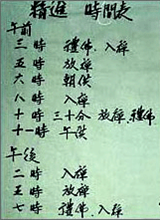 精進 時間表
午前
三 時 禮佛、入禪
五 時 放禪
六 時 朝供
八 時 入禪
十 時 三十分 放禪、禮供
十一時 午供
午後
二 時 入禪
五 時 放禪
七 時 禮佛、入禪